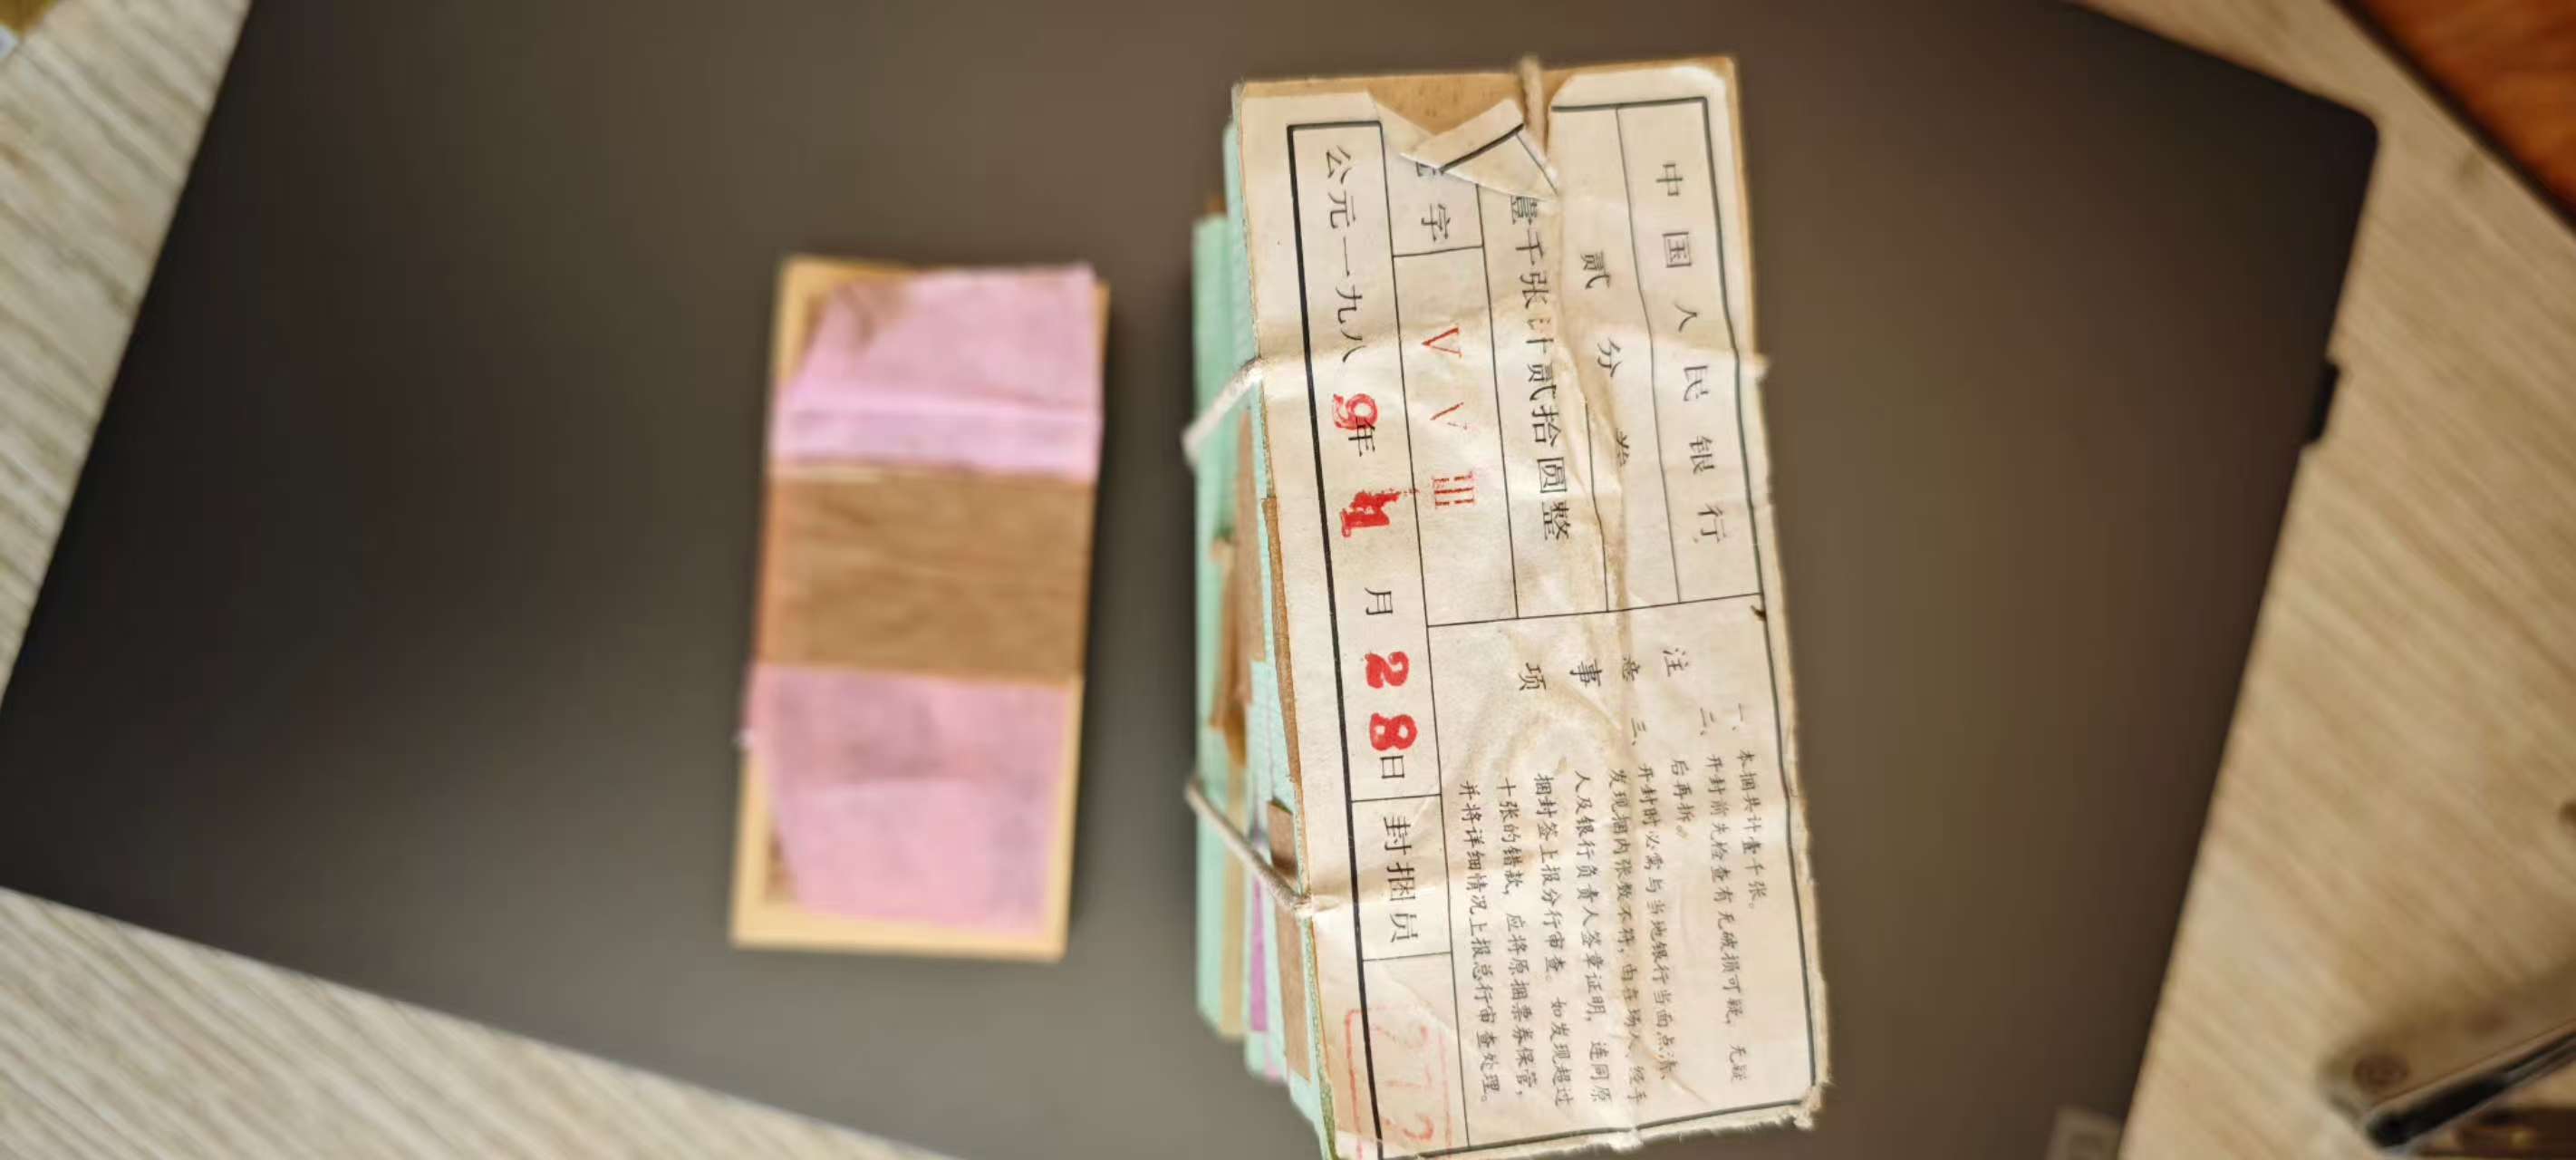 中国人民银行
贰分券
壹千张计贰拾圆整
字 V V III
公元一九八9年11月28日
封捆员
272
注意事项
一、本捆共计壹千张。
二、开封前先检查有无破损可疑，无疑
后再拆。
三、开封时必需与当地银行当面点清、
发现捆内张数不符，由在场人、经手
人及银行负责人签章证明，连同原
捆封签上报分行审查。如发现超过
十张的错款，应将原捆票券保管，
并将详细情况上报总行审查处理。